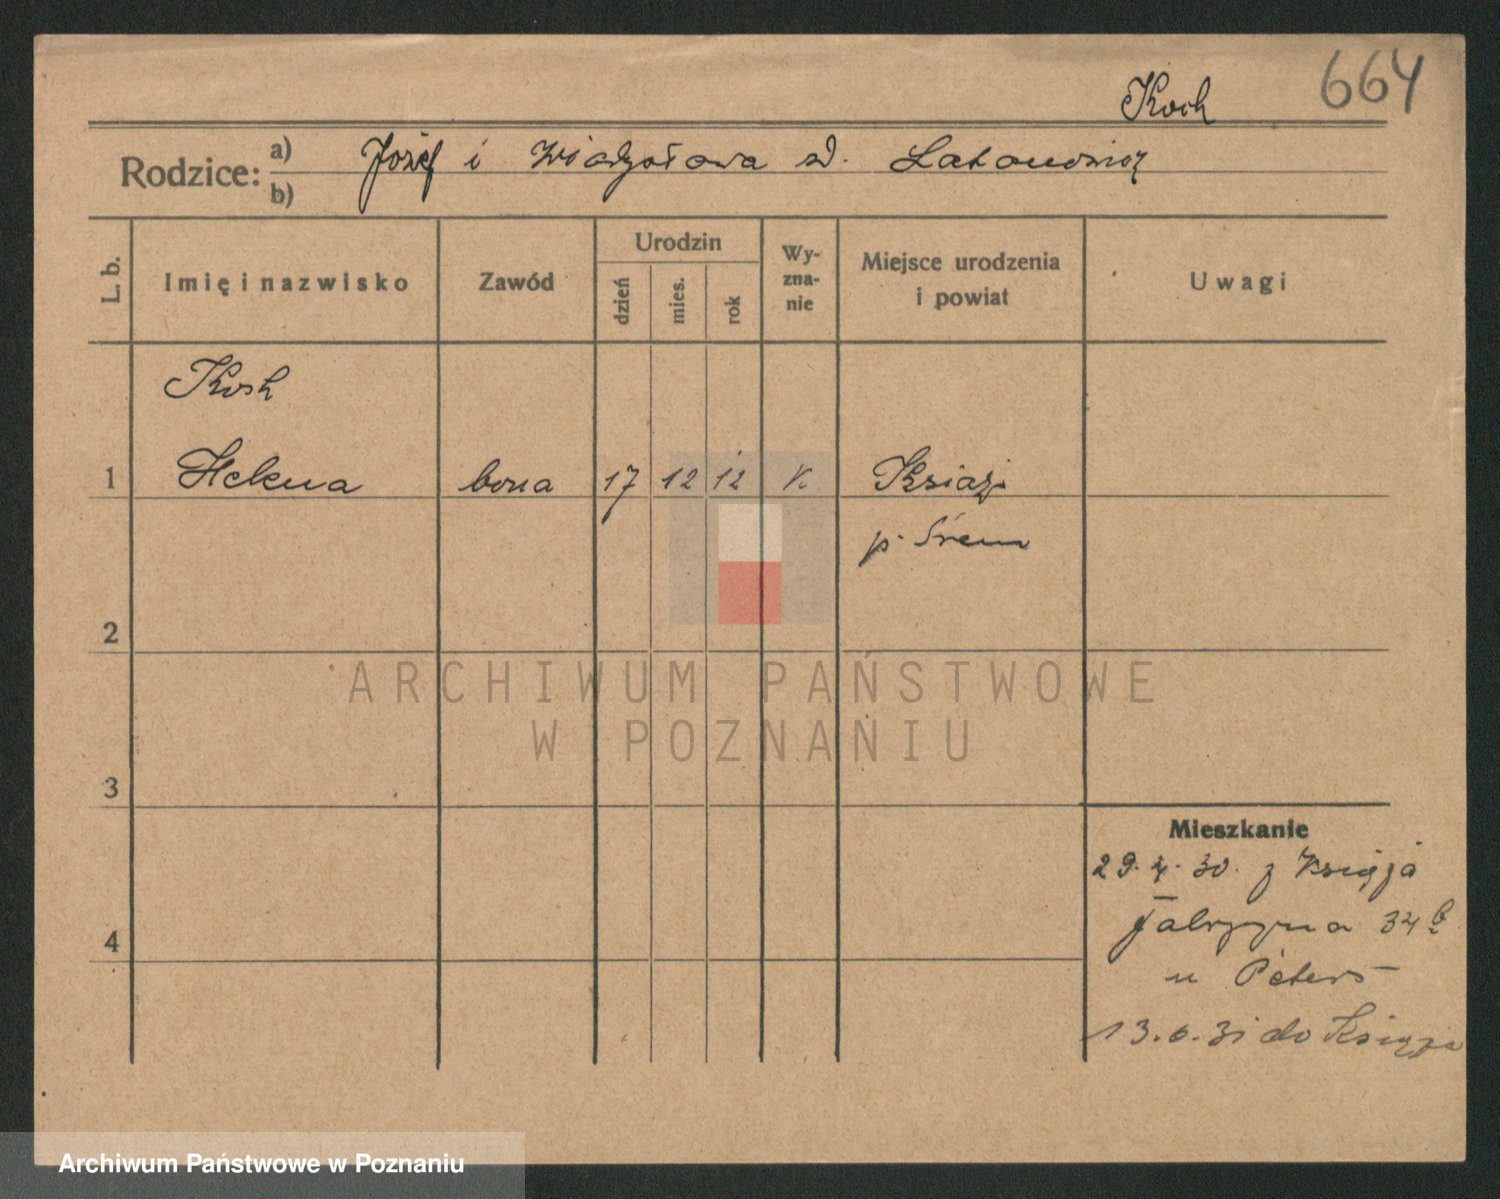 664
Koch
Rodzice: a) Józef i Władysława zd. Łakomowicz
b)
L. b. Imię i nazwisko Zawód Urodzin dzień mies. rok Wy-zna-nie Miejsce urodzenia i powiat Uwagi
Koch
1 Helena bona 17 12 12 K. Książ
p. Śrem
2
3
4
Mieszkanie
29. 4. 30. z Książa
Fabryczna 34
u Peters
13. 6. 31 do Książa
ARCHIWUM PAŃSTWOWE
W POZNANIU
Archiwum Państwowe w Poznaniu